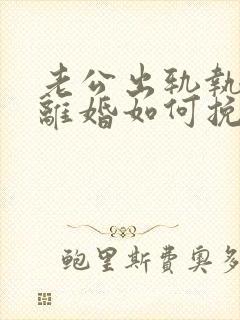 老公出轨執
離婚如何挽
鲍里斯費奥多